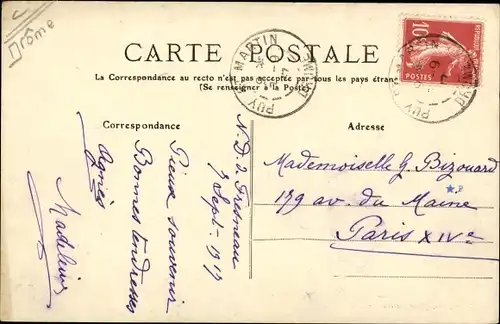 Drôme
CARTE POSTALE
La Correspondance au recto n'est pas acceptée par tous les pays étrangers
(Se renseigner à la Poste)
PUY ST MARTIN
DROME
10
POSTES
PUY
DROME
Correspondance
N.D. d Fresneau
7 Sept. 1917
Pieux souvenir
Bonnes tendresses
Agnès
Madeleine
Adresse
Mademoiselle G. Bizouard
179 av. du Maine
Paris XIVe